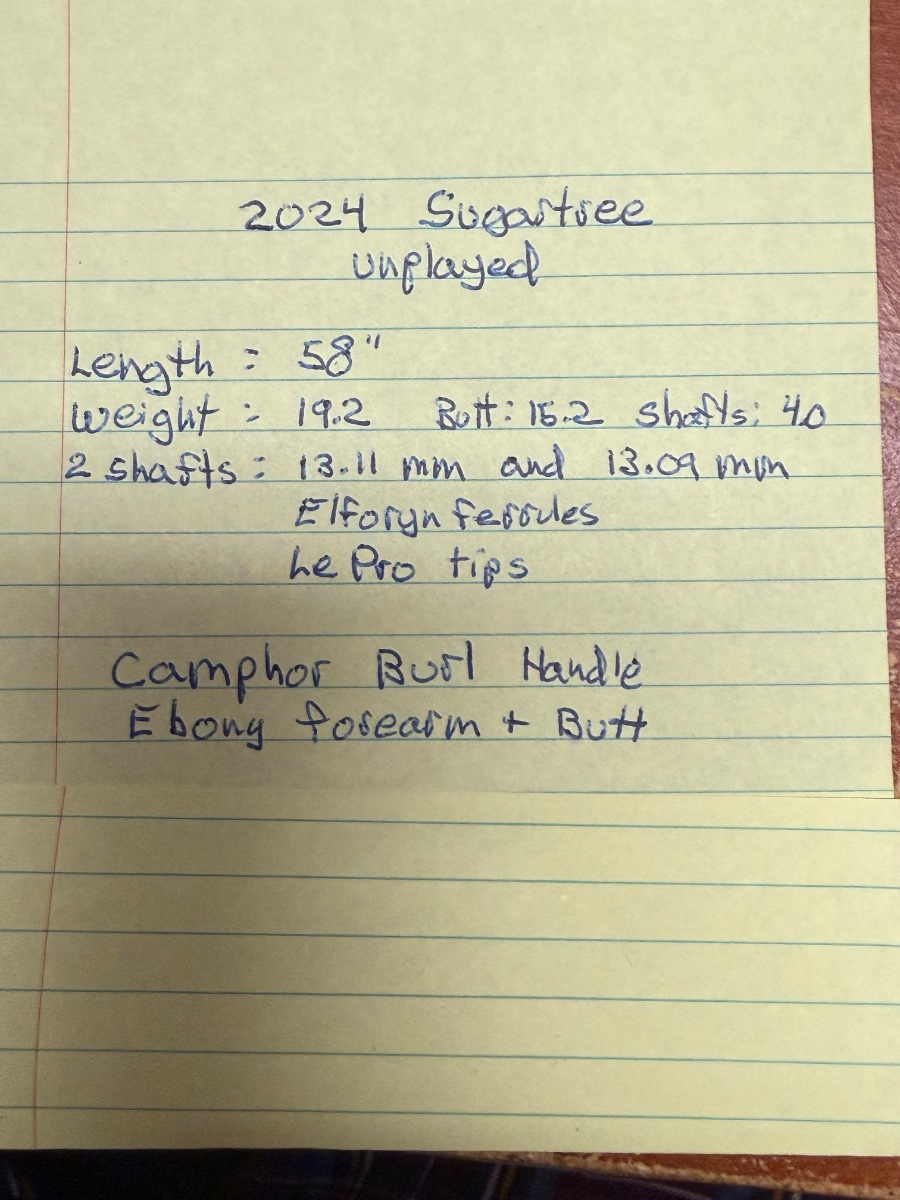 2024 Sugartree
unplayed
Length : 58"
Weight : 19.2 Butt: 15.2 shafts: 4.0
2 shafts: 13.11 mm and 13.09 mm
Elforyn ferrules
Le Pro tips
Camphor Burl Handle
Ebony forearm + Butt